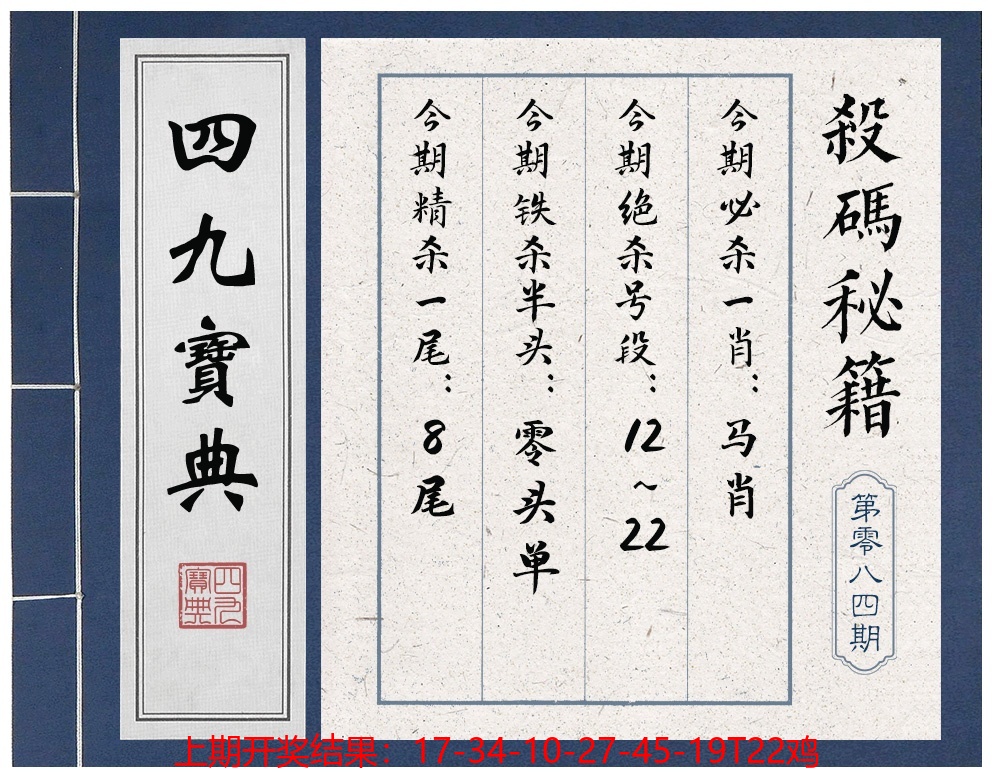 殺碼秘籍
第零八四期
今期必杀一肖：马肖
今期绝杀号段：12~22
今期铁杀半头：零头单
今期精杀一尾：8尾
四九寶典
四九寶典
上期开奖结果：17-34-10-27-45-19T22鸡